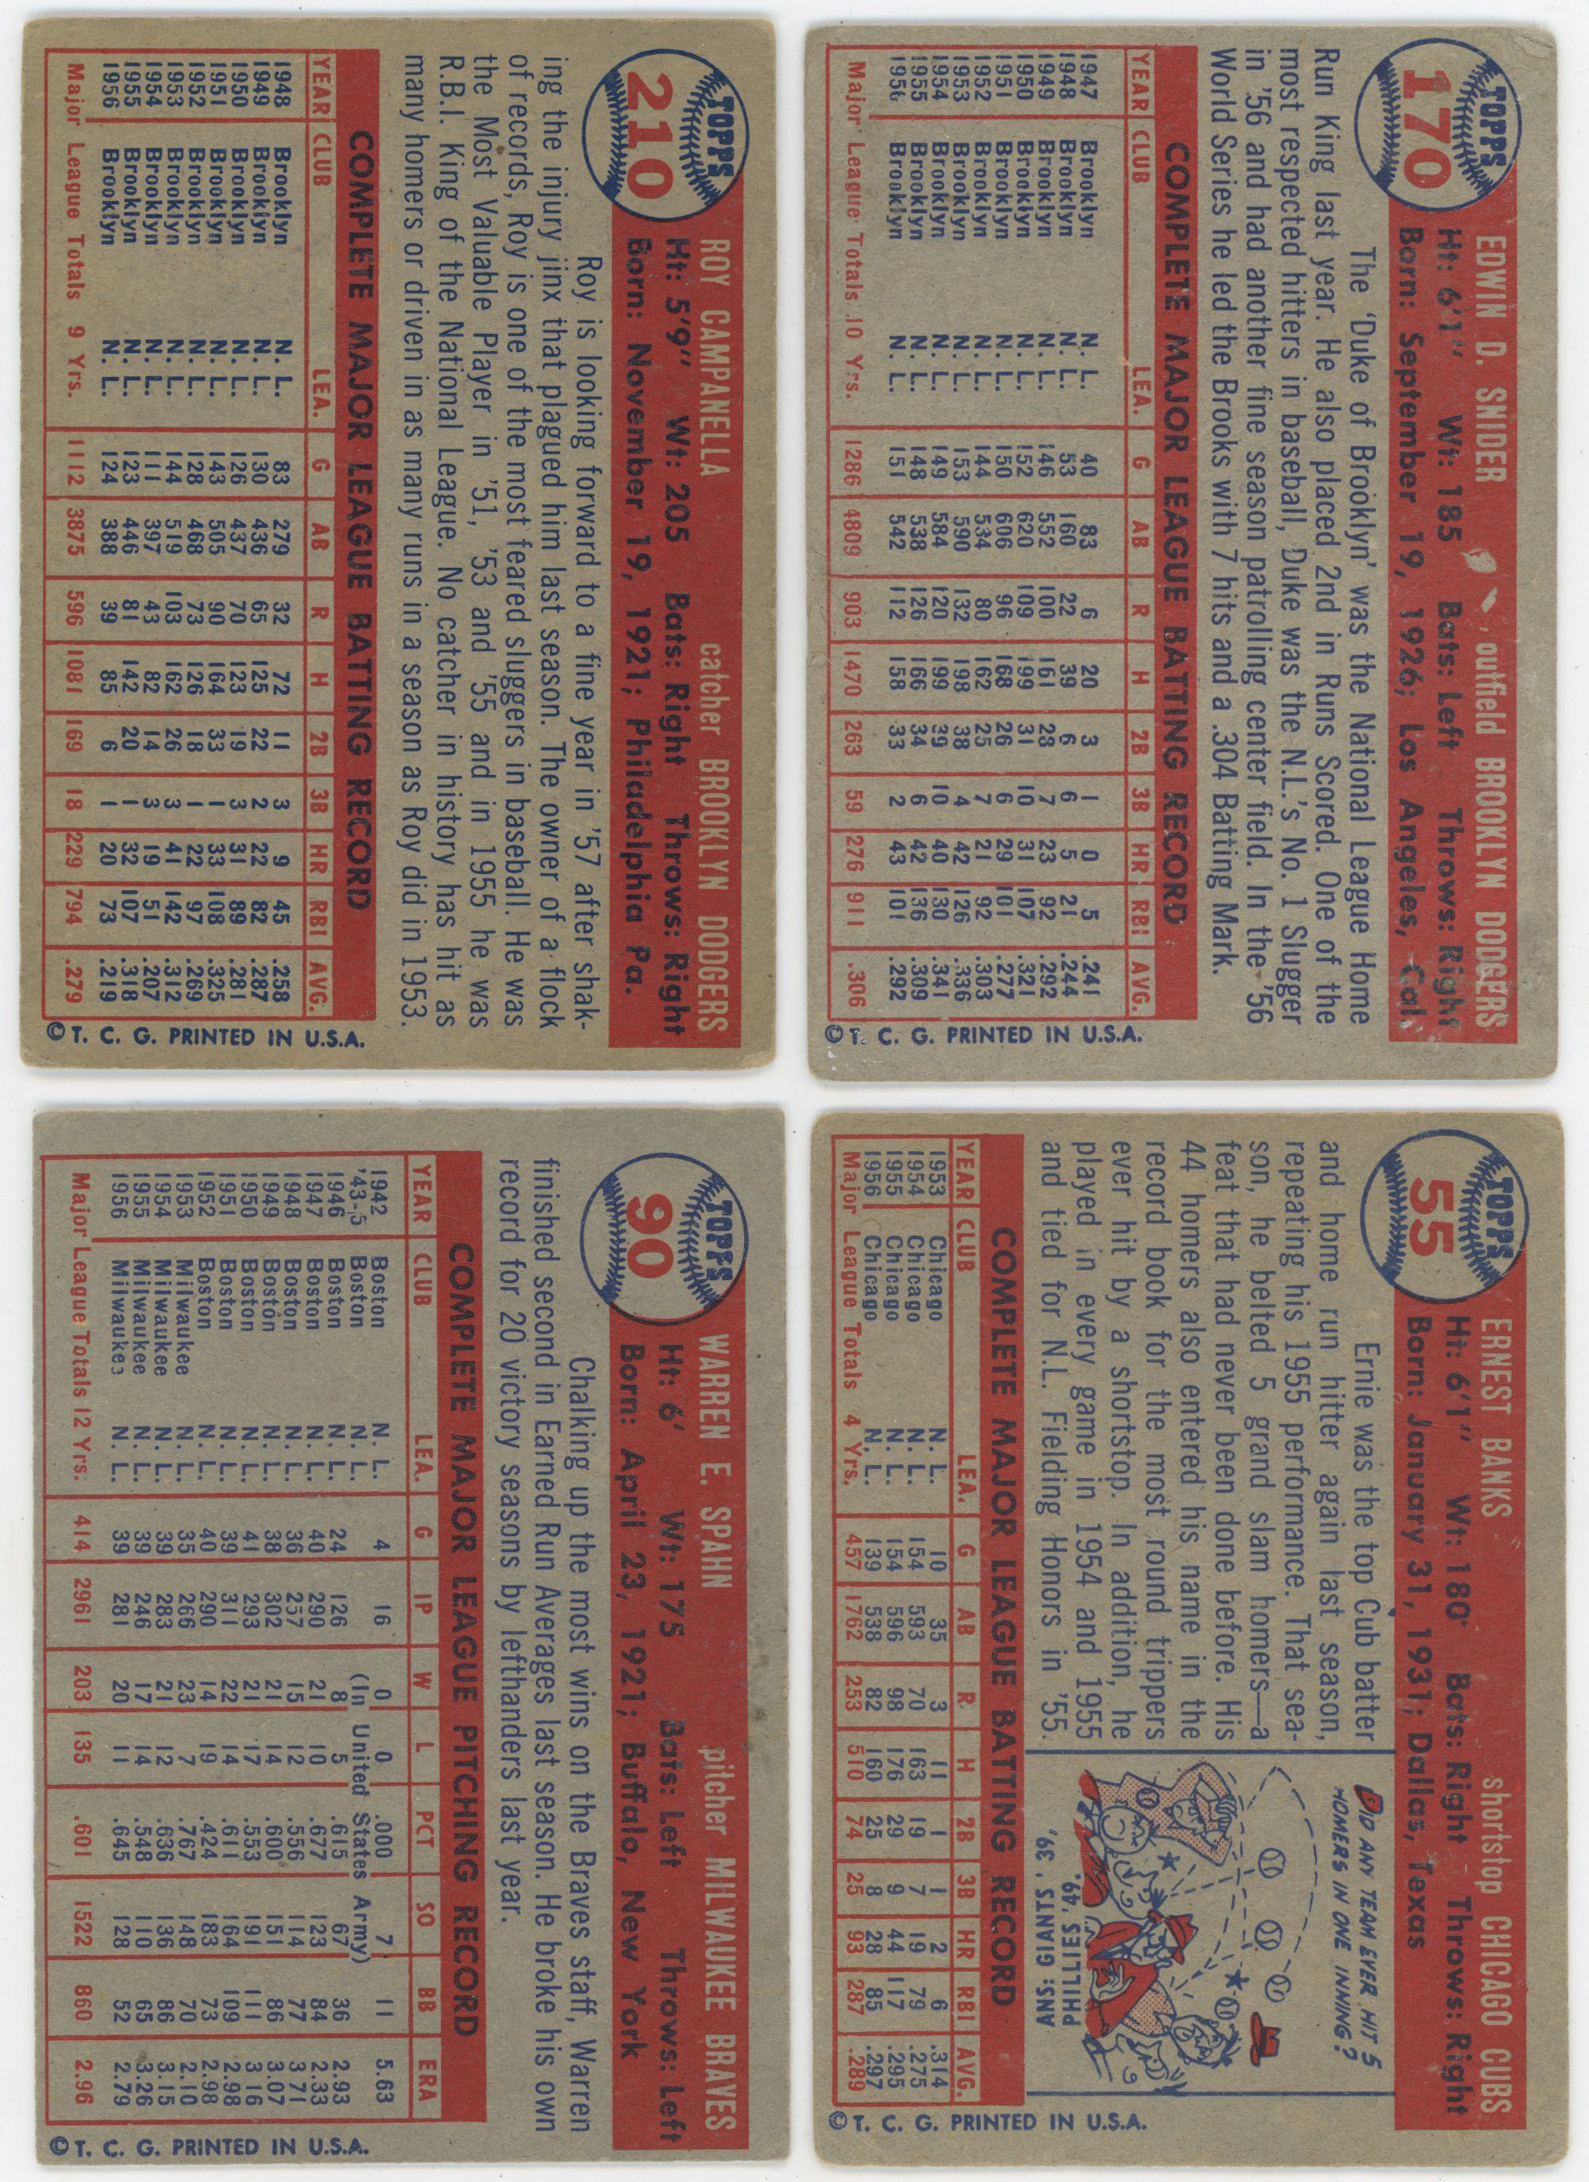 TOPPS
210
ROY CAMPANELLA catcher BROOKLYN DODGERS
Ht: 5'9" Wt: 205 Bats: Right Throws: Right
Born: November 19, 1921; Philadelphia Pa.
Roy is looking forward to a fine year in '57 after shak-
ing the injury jinx that plagued him last season. The owner of a flock
of records, Roy is one of the most feared sluggers in baseball. He was
the Most Valuable Player in '51, '53 and '55 and in 1955 he was
R.B.I. King of the National League. No catcher in history has hit as
many homers or driven in as many runs in a season as Roy did in 1953.
COMPLETE MAJOR LEAGUE BATTING RECORD
YEAR CLUB LEA. G AB R H 2B 3B HR RBI AVG.
1948 Brooklyn N. L. 83 279 32 72 11 3 9 45 .258
1949 Brooklyn N. L. 130 436 65 125 22 2 22 82 .287
1950 Brooklyn N. L. 126 437 70 123 19 3 31 89 .281
1951 Brooklyn N. L. 143 505 90 164 33 1 33 108 .325
1952 Brooklyn N. L. 128 468 73 126 18 1 22 97 .269
1953 Brooklyn N. L. 144 519 103 162 26 3 41 142 .312
1954 Brooklyn N. L. 111 397 43 82 14 3 19 51 .207
1955 Brooklyn N. L. 123 446 81 142 20 1 32 107 .318
1956 Brooklyn N. L. 124 388 39 85 6 1 20 73 .219
Major League Totals 9 Yrs. 1112 3875 596 1081 169 18 229 794 .279
© T. C. G. PRINTED IN U.S.A.
TOPPS
170
EDWIN D. SNIDER outfield BROOKLYN DODGERS
Ht: 6'1" Wt: 185 Bats: Left Throws: Right
Born: September 19, 1926; Los Angeles, Cal
The 'Duke of Brooklyn' was the National League Home
Run King last year. He also placed 2nd in Runs Scored. One of the
most respected hitters in baseball, Duke was the N.L.'s No. 1 Slugger
in '56 and had another fine season patrolling center field. In the '56
World Series he led the Brooks with 7 hits and a .304 Batting Mark.
COMPLETE MAJOR LEAGUE BATTING RECORD
YEAR CLUB LEA. G AB R H 2B 3B HR RBI AVG.
1947 Brooklyn N. L. 40 83 6 20 3 1 0 5 .241
1948 Brooklyn N. L. 53 160 22 39 6 6 5 21 .244
1949 Brooklyn N. L. 146 552 100 161 28 7 23 92 .292
1950 Brooklyn N. L. 152 620 109 199 31 10 31 107 .321
1951 Brooklyn N. L. 150 606 96 168 26 6 29 101 .277
1952 Brooklyn N. L. 144 534 80 162 25 7 21 92 .303
1953 Brooklyn N. L. 153 590 132 198 38 4 42 126 .336
1954 Brooklyn N. L. 149 584 120 199 39 10 40 130 .341
1955 Brooklyn N. L. 148 538 126 166 34 6 42 136 .309
1956 Brooklyn N. L. 151 542 112 158 33 2 43 101 .292
Major League Totals 10 Yrs. 1286 4809 903 1470 263 59 276 911 .306
© T. C. G. PRINTED IN U.S.A.
TOPPS
90
WARREN E. SPAHN pitcher MILWAUKEE BRAVES
Ht: 6' Wt: 175 Bats: Left Throws: Left
Born: April 23, 1921; Buffalo, New York
Chalking up the most wins on the Braves staff, Warren
finished second in Earned Run Averages last season. He broke his own
record for 20 victory seasons by lefthanders last year.
COMPLETE MAJOR LEAGUE PITCHING RECORD
YEAR CLUB LEA. G IP W L PCT SO BB ERA
1942 Boston N. L. 4 16 0 0 .000 7 11 5.63
'43-5 Boston N. L. (In United States Army)
1946 Boston N. L. 24 126 8 5 .615 67 36 2.93
1947 Boston N. L. 40 290 21 10 .677 123 84 2.33
1948 Boston N. L. 36 257 15 12 .556 114 77 3.71
1949 Boston N. L. 38 302 21 14 .600 151 86 3.07
1950 Boston N. L. 41 293 21 17 .553 191 111 3.16
1951 Boston N. L. 39 311 22 14 .611 164 109 2.98
1952 Boston N. L. 40 290 14 19 .424 183 73 2.98
1953 Milwaukee N. L. 35 266 23 7 .767 148 70 2.10
1954 Milwaukee N. L. 39 283 21 12 .636 136 86 3.15
1955 Milwaukee N. L. 39 246 17 14 .548 110 65 3.26
1956 Milwaukee N. L. 39 281 20 11 .645 128 52 2.79
Major League Totals 12 Yrs. 414 2961 203 135 .601 1522 860 2.96
© T. C. G. PRINTED IN U.S.A.
TOPPS
55
ERNEST BANKS shortstop CHICAGO CUBS
Ht: 6'1" Wt: 180 Bats: Right Throws: Right
Born: January 31, 1931; Dallas, Texas
Ernie was the top Cub batter
and home run hitter again last season,
repeating his 1955 performance. That sea-
son, he belted 5 grand slam homers—a
feat that had never been done before. His
44 homers also entered his name in the
record book for the most round trippers
ever hit by a shortstop. In addition, he
played in every game in 1954 and 1955
and tied for N.L. Fielding Honors in '55.
DID ANY TEAM EVER HIT 5
HOMERS IN ONE INNING?
ANS: GIANTS '39,
PHILLIES '49.
COMPLETE MAJOR LEAGUE BATTING RECORD
YEAR CLUB LEA. G AB R H 2B 3B HR RBI AVG.
1953 Chicago N. L. 10 35 3 11 1 1 2 6 .314
1954 Chicago N. L. 154 593 70 163 19 7 19 79 .275
1955 Chicago N. L. 154 596 98 176 29 9 44 117 .295
1956 Chicago N. L. 139 538 82 160 25 8 28 85 .297
Major League Totals 4 Yrs. 457 1762 253 510 74 25 93 287 .289
© T. C. G. PRINTED IN U.S.A.